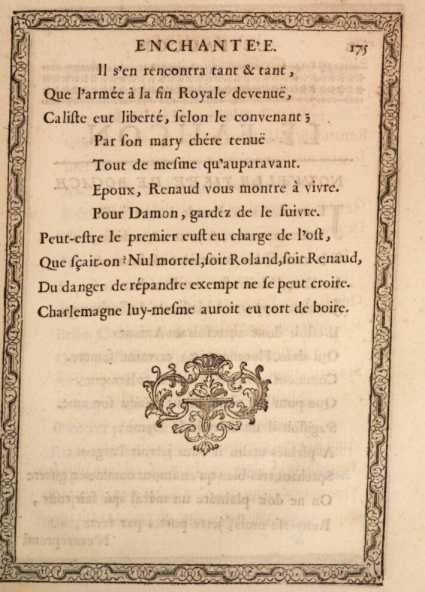 ENCHANTE'E. 175
Il s'en rencontra tant & tant,
Que l'armée à la fin Royale devenuë,
Caliste eut liberté, selon le convenant;
Par son mary chére tenuë
Tout de mesme qu'auparavant.
Epoux, Renaud vous montre à vivre.
Pour Damon, gardez de le suivre.
Peut-estre le premier eust eu charge de l'ost,
Que sçait-on? Nul mortel, soit Roland, soit Renaud,
Du danger de répandre exempt ne se peut croire.
Charlemagne luy-mesme auroit eu tort de boire.